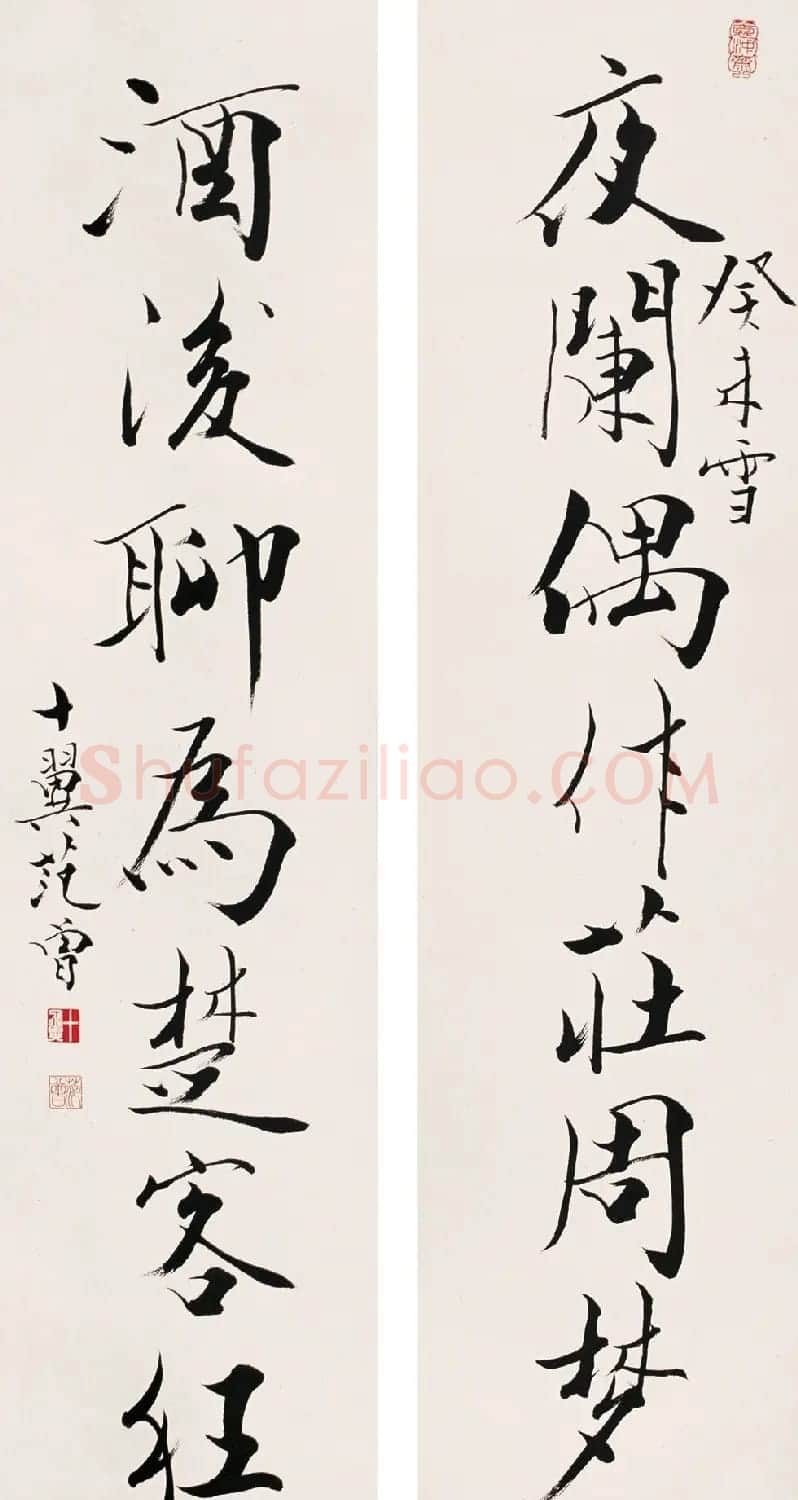 癸未雪
夜闌偶作莊周梦
酒後聊為楚客狂
十翼范曾
Shufaziliao.COM